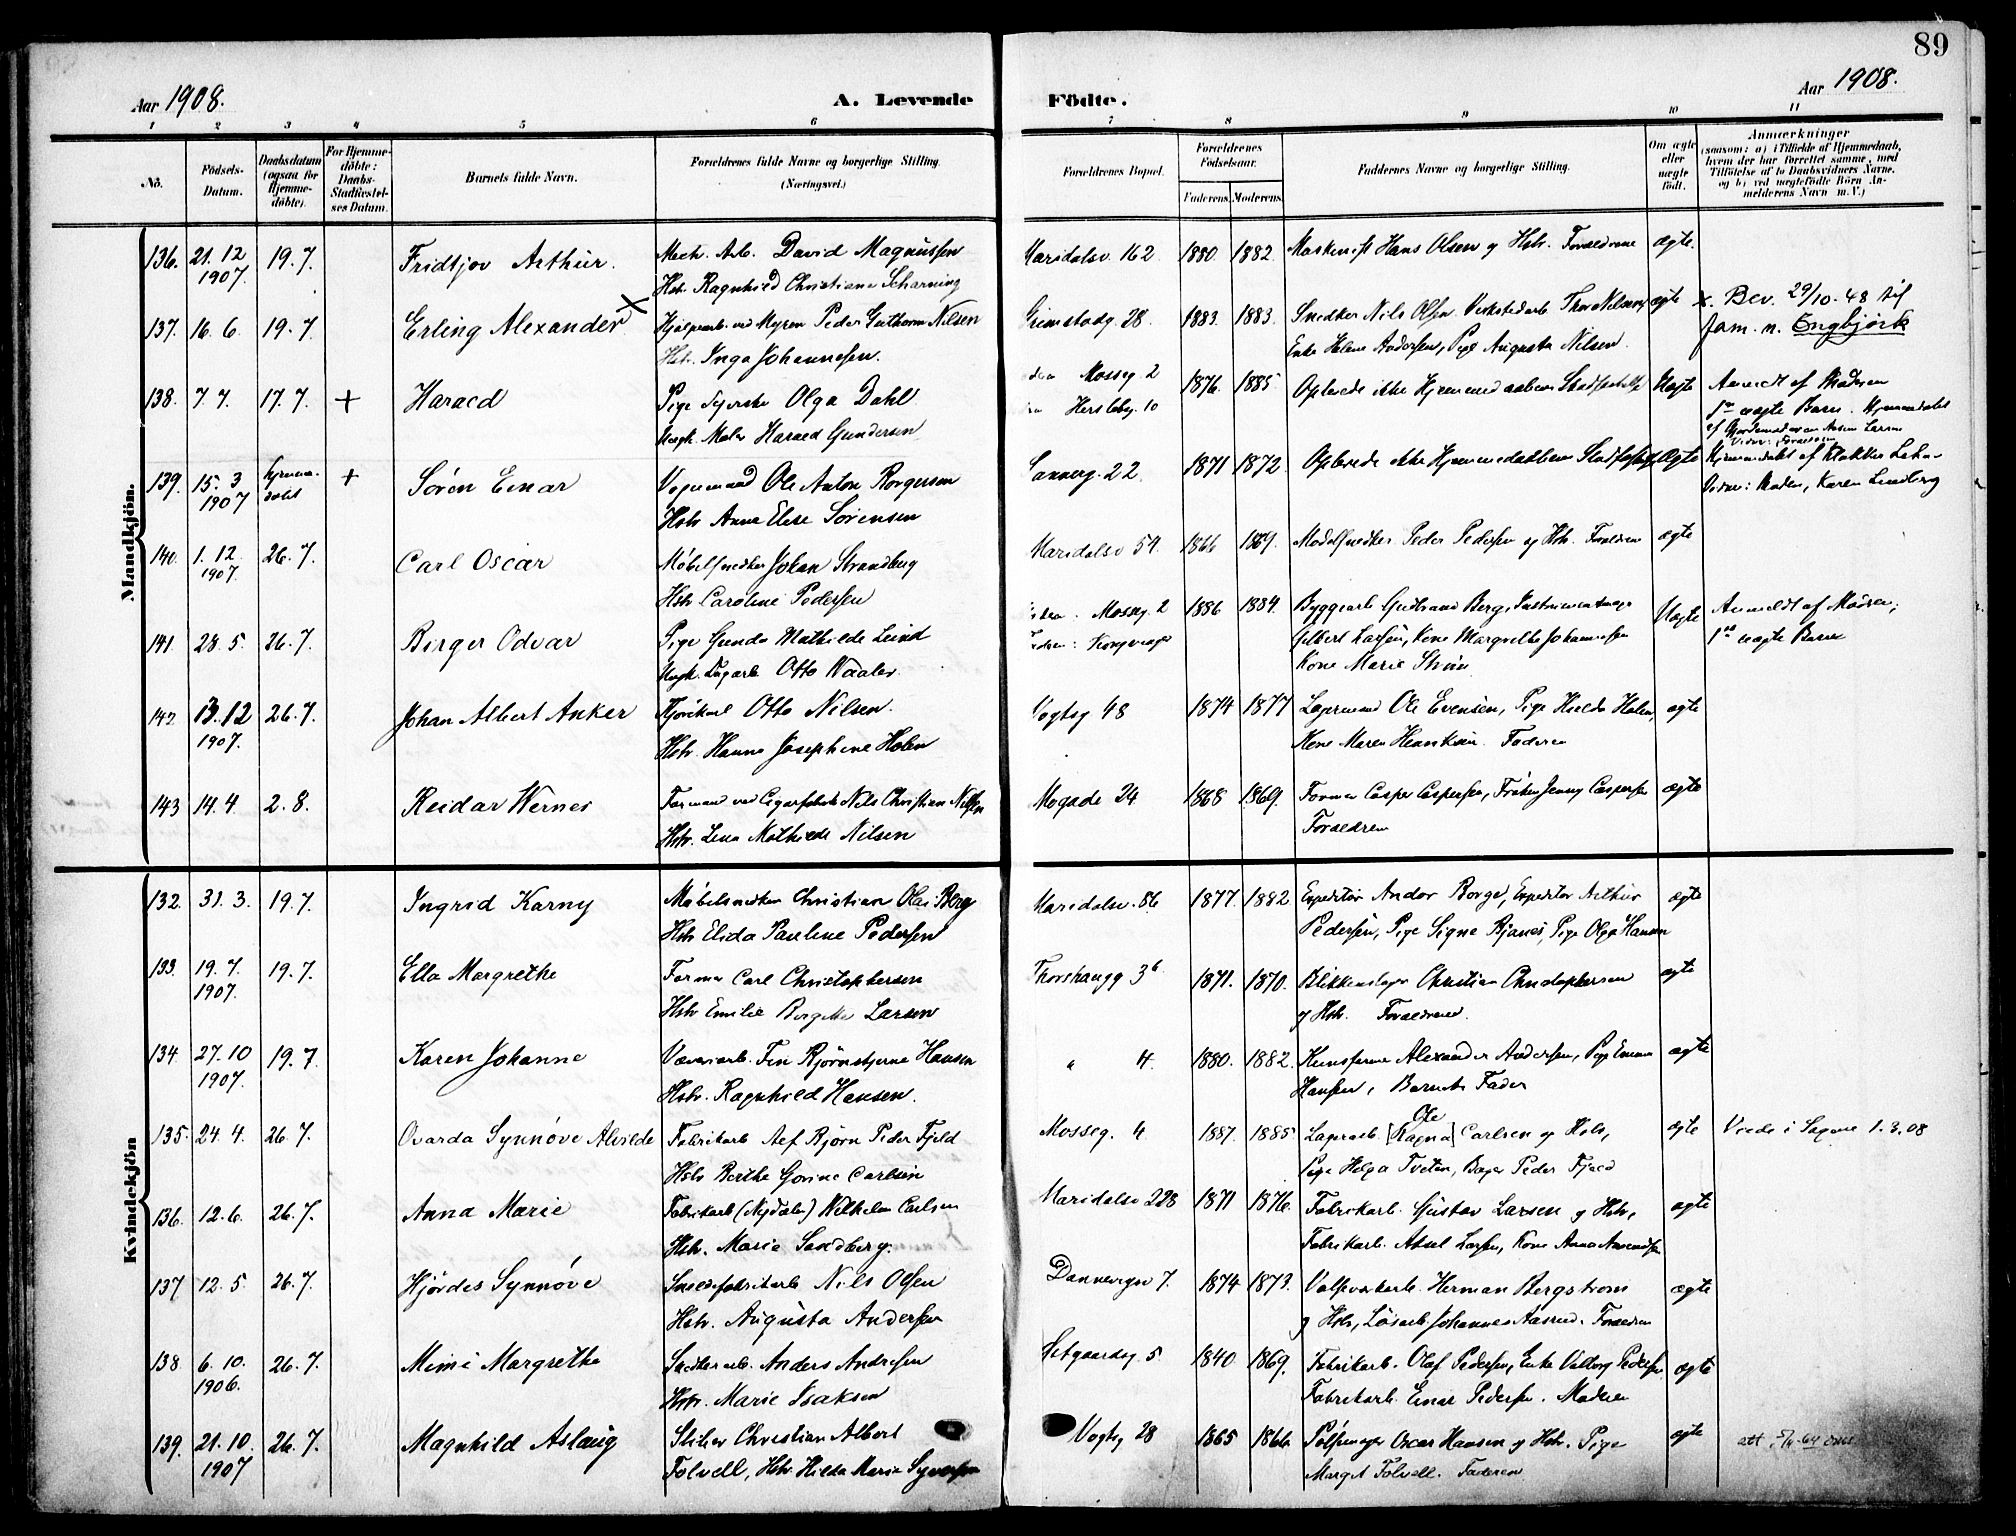 89
Aar 1908.
A. Levende Födte.
Aar 1908.
1 2 3 4 5 6 7 8 9 10 11
No. Födsels-Datum. Daabsdatum (ogsaa for Hjemme-döbte). For Hjemme-döbte: Daabs-Stadfæstel-ses Datum. Barnets fulde Navn. Forældrenes fulde Navne og borgerlige Stilling. (Næringsvei.)
Forældrenes Bopæl. Forældrenes Födselsaar. Faderens. Moderens. Faddernes Navne og borgerlige Stilling. Om ægte eller uægte födt. Anmærkninger (saasom: a) i Tilfælde af Hjemmedaab, hvem der har forrettet samme, med Tilföielse af to Daabsvidners Navne, og b) ved uægtefödte Börn Anmelderens Navn m. V.)
Mandkjön.
136. 21.12 19.7. Fridtjov Arthur. Mech. Arb. David Magnussen Maridalsv. 162 1880. 1882. Maskinist Hans Olsen og Hstr. Forældrene ægte.
1907. Hstr. Ragnhild Christiane Scharning
137. 16.6. 19.7. Erling Alexander x Hjælpearb. ved Myren Peder Guthorm Nilsen Grimstadg. 28. 1883. 1883. Snedker Nils Olsen, Verkstedarb. Thor Nilsen, ægte x. Bev. 29/10-48 til
Hstr. Inga Johannesen. Enke Helene Andersen, Pige Augusta Nilsen. fam. n. Engbjörk
138. 7.7. 17.7. + Harald Pige Syerske Olga Dahl Mosseg. 2 1876. 1885. Oplevede ikke Hjemmedaabens Stadfæstelse Uægte Anmeldt af Moderen
Ungk. Maler Harald Gundersen Herslebg. 10 1ste uægte Barn. Hjemmedøbt
af Jordemoderen Larsen
Vidner: Forældrene
139. 15.3 Hjemme- + Søren Einar Vognmand Ole Anton Borgersen Sannerg. 22. 1871 1872 Oplevede ikke Hjemmedaabens Stadfæstelse Ægte Hjemmedøbt af Klokker
1907 døbt Hstr. Anna Elise Sörensen Vidner: Moderen, Karen Lindberg
140. 1.12. 26.7. Carl Oscar Møbelsnedker Johan Strandberg Maridalsv 54. 1866 1869. Modelsnedker Peder Pedersen og Hstr. Forældrene ægte
1907. Hstr Caroline Pedersen
141. 28.5. 26.7. Birger Odvar Pige Gunda Mathilde Lund Mosseg. 2 1886 1884. Byggearb. Gudbrand Berg, Instrumentmager Uægte Anmeldt af Moderen;
Ungk. Otto Waaler. Kongsvinger Gilbert Larsen, Kone Margrethe Johannesen 1ste uægte Barn
Kone Marie
142. 13.12 26.7. Johan Albert Anker Otto Nilsen. Vogtsg 48 1874 1877 Lagermand Ole Evensen, Pige Hilda Holen, ægte
1907. Hstr. Hanna Josephine Holen Kone Maren Henriksen. Faderen
143 14.4 2.8. Reidar Wernes Formand ved Cigarfabrik Nils Christian Nilsen Mogade 24 1868 1869. Former Casper Caspersen, Frøken Jenny Caspersen ægte
Hstr. Lina Mathilde Nilsen Forældrene
Kvindekjön
132. 31.3. 19.7. Ingrid Karny Møbelsnedker Christian Olai Berg Maridalsv. 86 1877. 1882 Expeditør Andor Borge, Expeditør Arthur ægte
Hstr Elida Pauline Pedersen Pedersen, Pige Signe Bjanes, Pige Olga Hansen
133. 19.7. 19.7. Ella Margrethe Former Carl Christophersen Thorshaugg 3b 1871. 1870. Blikkenslager Christian Christophersen ægte
1907. Hstr Emilie Bergitte Larsen og Hstr. Forældrene.
134. 27.10 19.7 Karen Johanne Væveriarb. Fin Bjørnstjerne Hansen " 4. 1880. 1882. Alexander Andersen, Pige Emma ægte
1907. Hstr. Ragnhild Hansen. Hansen, Barnets Fader
135. 24.4. 26.7. Ovarda Synnöve Alvilde Fabrikarb. Alf Björn Peder Fjeld Mosseg. 4 1887. 1885. Lagerarb. [Ragna] Ole Carlsen og Hstr, ægte Viede i Sagene 1.3.08
Hstr Berthe Gorine Carlsen Pige Helga Tveten, Bager Peder Fjeld
136. 12.6. 26.7. Anna Marie Fabrikarb (Nydalen) Wilhelm Carlsen Maridalsv 228 1871 1876. Fabrikarb. Gustav Larsen og Hstr, ægte
Hstr. Marie Sandberg. Fabrikarb. Aksel Larsen, Kone Anna Amundsen
137 12.5 26.7. Hjördes Synnöve Nils Olsen Dannevigsv 7. 1874 1873. Valseverkarb. Herman Bergstrom ægte
Hstr. Augusta Andersen og Hstr, Løsarb Johannes Aasrud. Forældrene
138 6.10. 26.7. Mimi Margrethe Anders Andresen 5 1840 1869. Fabrikarb. Olaf Pedersen, Enke Valborg Pedersen ægte
1906. Hstr. Marie Isaksen Fabrikarb. Einar Pedersen. Moderen
139. 21.10. 26.7. Magnhild Aslaug Christian Albert Vogtsg 28 1865 1866. Pølsemager Oscar Hansen og Hstr. Pige ægte att.
1907 Folvell, Hstr. Hilda Marie Syversen Margit Folvell. Faderen